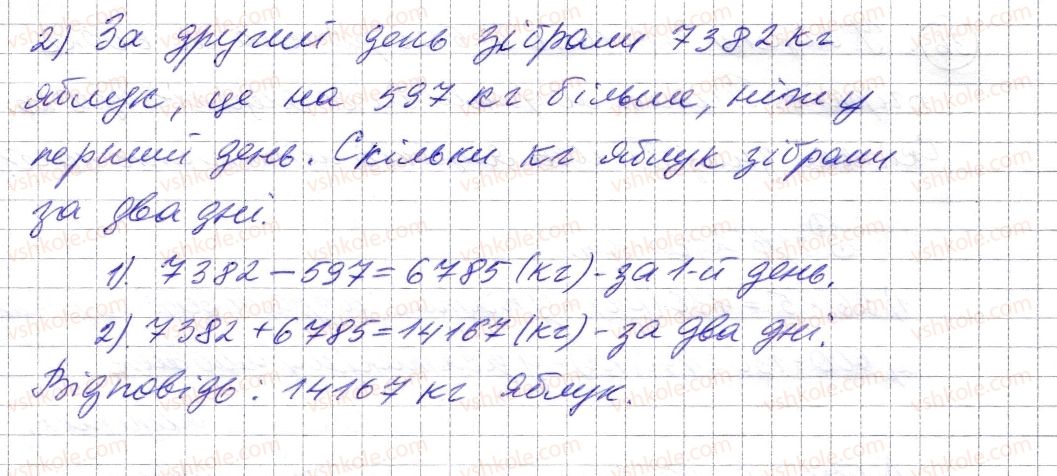 2) За другий день зібрали 7382 кг
яблук, це на 597 кг більше, ніж у
перший день. Скільки кг яблук зібрали
за два дні.
1). 7382 - 597 = 6785 (кг) - за 1-й день.
2). 7382 + 6785 = 14167 (кг) - за два дні.
Відповідь: 14167 кг яблук.